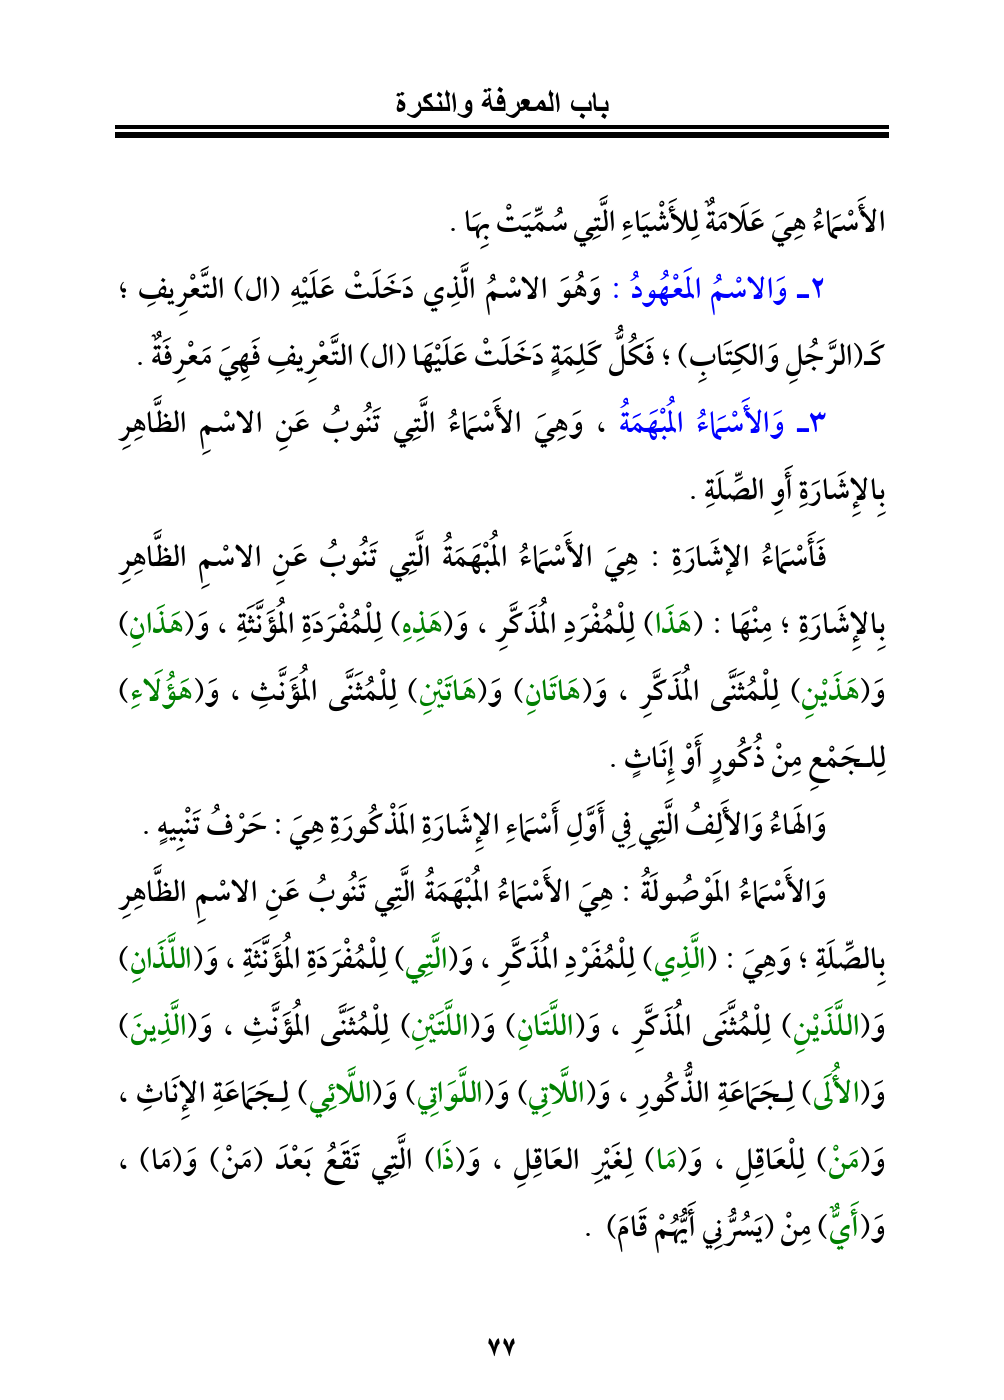 باب المعرفة والنكرة
الأَسْمَاءُ هِيَ عَلَامَةٌ لِلأَشْيَاءِ الَّتِي سُمِّيَتْ بِهَا .
٢ـ وَالاسْمُ المَعْهُودُ : وَهُوَ الاسْمُ الَّذِي دَخَلَتْ عَلَيْهِ (ال) التَّعْرِيفِ ؛
كَـ(الرَّجُلِ وَالكِتَابِ) ؛ فَكُلُّ كَلِمَةٍ دَخَلَتْ عَلَيْهَا (ال) التَّعْرِيفِ فَهِيَ مَعْرِفَةٌ .
٣ـ وَالأَسْمَاءُ المُبْهَمَةُ ، وَهِيَ الأَسْمَاءُ الَّتِي تَنُوبُ عَنِ الاسْمِ الظَّاهِرِ
بِالإِشَارَةِ أَوِ الصِّلَةِ .
فَأَسْمَاءُ الإشَارَةِ : هِيَ الأَسْمَاءُ المُبْهَمَةُ الَّتِي تَنُوبُ عَنِ الاسْمِ الظَّاهِرِ
بِالإِشَارَةِ ؛ مِنْهَا : (هَذَا) لِلْمُفْرَدِ المُذَكَّرِ ، وَ(هَذِهِ) لِلْمُفْرَدَةِ المُؤَنَّثَةِ ، وَ(هَذَانِ)
وَ(هَذَيْنِ) لِلْمُثَنَّى المُذَكَّرِ ، وَ(هَاتَانِ) وَ(هَاتَيْنِ) لِلْمُثَنَّى المُؤَنَّثِ ، وَ(هَؤُلَاءِ)
لِلـجَمْعِ مِنْ ذُكُورٍ أَوْ إِنَاثٍ .
وَالهَاءُ وَالأَلِفُ الَّتِي فِي أَوَّلِ أَسْمَاءِ الإِشَارَةِ المَذْكُورَةِ هِيَ : حَرْفُ تَنْبِيهٍ .
وَالأَسْمَاءُ المَوْصُولَةُ : هِيَ الأَسْمَاءُ المُبْهَمَةُ الَّتِي تَنُوبُ عَنِ الاسْمِ الظَّاهِرِ
بِالصِّلَةِ ؛ وَهِيَ : (الَّذِي) لِلْمُفَرْدِ المُذَكَّرِ ، وَ(الَّتِي) لِلْمُفْرَدَةِ المُؤَنَّثَةِ ، وَ(اللَّذَانِ)
وَ(اللَّذَيْنِ) لِلْمُثَّنَى المُذَكَّرِ ، وَ(اللَّتَانِ) وَ(اللَّتَيْنِ) لِلْمُثَنَّى المُؤَنَّثِ ، وَ(الَّذِينَ)
وَ(الأُلَى) لِـجَمَاعَةِ الذُّكُورِ ، وَ(اللَّاتِي) وَ(اللَّوَاتِي) وَ(اللَّائِي) لِـجَمَاعَةِ الإِنَاثِ ،
وَ(مَنْ) لِلْعَاقِلِ ، وَ(مَا) لِغَيْرِ العَاقِلِ ، وَ(ذَا) الَّتِي تَقَعُ بَعْدَ (مَنْ) وَ(مَا) ،
وَ(أَيٌّ) مِنْ (يَسُرُّنِي أَيُّهُمْ قَامَ) .
٧٧